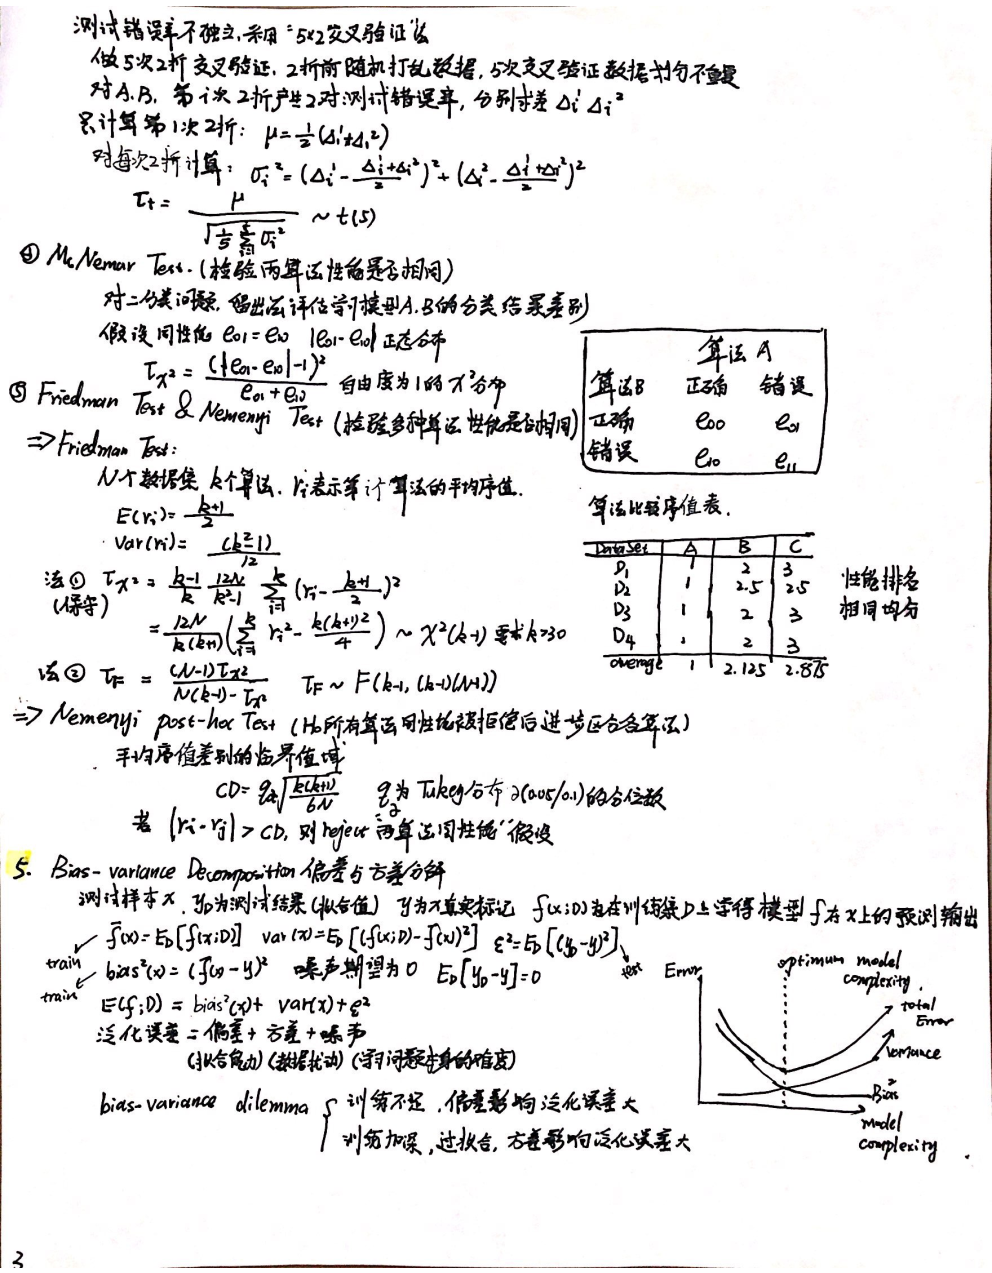 测试错误率不独立,采用"5×2交叉验证"法
做5次2折交叉验证,2折前随机打乱数据,5次交叉验证数据划分不重复
对A.B,第i次2折产生2对测试错误率,分别求差 Δi¹ Δi²
只计算第1次2折: μ=½(Δ₁¹+Δ₁²)
对每次2折计算: σi²=(Δi¹-(Δi¹+Δi²)/2)²+(Δi²-(Δi¹+Δi²)/2)²
τt = μ/√(1/5 Σ(i=1→5) σi²) ~ t(5)
④ McNemar Test.(检验两算法性能是否相同)
对二分类问题,留出法评估学习模型A.B的分类结果差别
假设同性能 e01=e10 |e01-e10| 正态分布
τχ² = (|e01-e10|-1)²/(e01+e10) 自由度为1的χ²分布
算法A
算法B 正确 错误
正确 e00 e01
错误 e10 e11
⑤ Friedman Test & Nemenyi Test (检验多种算法性能是否相同)
=>Friedman Test:
N个数据集 k个算法. ri表示第i个算法的平均序值.
E(ri)= (k+1)/2
Var(ri)= (k²-1)/12
法① τχ² = (k-1)/k 12N/(k²-1) Σ(i=1→k) (ri-(k+1)/2)²
(保守)
= 12N/(k(k+1)) (Σ(i=1→k) ri² - k(k+1)²/4) ~ χ²(k-1) 要求k>30
法② τF = (N-1)τχ²/(N(k-1)-τχ²) τF ~ F(k-1, (k-1)(N-1))
算法比较序值表.
DataSet A B C
D1 1 2 3
D2 1 2.5 2.5
D3 1 2 3
D4 1 2 3
average 1 2.125 2.875
性能排名
相同均分
=> Nemenyi post-hoc Test (H0所有算法同性能被拒绝后进一步区分各算法)
平均序值差别的临界值域
CD= qα√(k(k+1)/6N) qα为 Tukey分布 α(0.05/0.1)的分位数
若 |ri-rj|>CD, 则reject "两算法同性能"假设
5. Bias-variance Decomposition 偏差与方差分解
测试样本x, yD为测试结果(拟合值) y为x真实标记 f(x;D)为在训练集D上学得模型f在x上的预测输出
f̄(x)=ED[f(x;D)] var(x)=ED[(f(x;D)-f̄(x))²] ε²=ED[(yD-y)²]
train
test
bias²(x)=(f̄(x)-y)² 噪声期望为0 ED[yD-y]=0
train
E(f;D) = bias²(x)+ var(x)+ε²
泛化误差=偏差+方差+噪声
(拟合能力)(数据扰动)(学习问题本身的难度)
bias-variance dilemma { 训练不足,偏差影响泛化误差大
训练加深,过拟合,方差影响泛化误差大
Error
optimum model
complexity.
total
Error
variance
Bias²
model
complexity
3